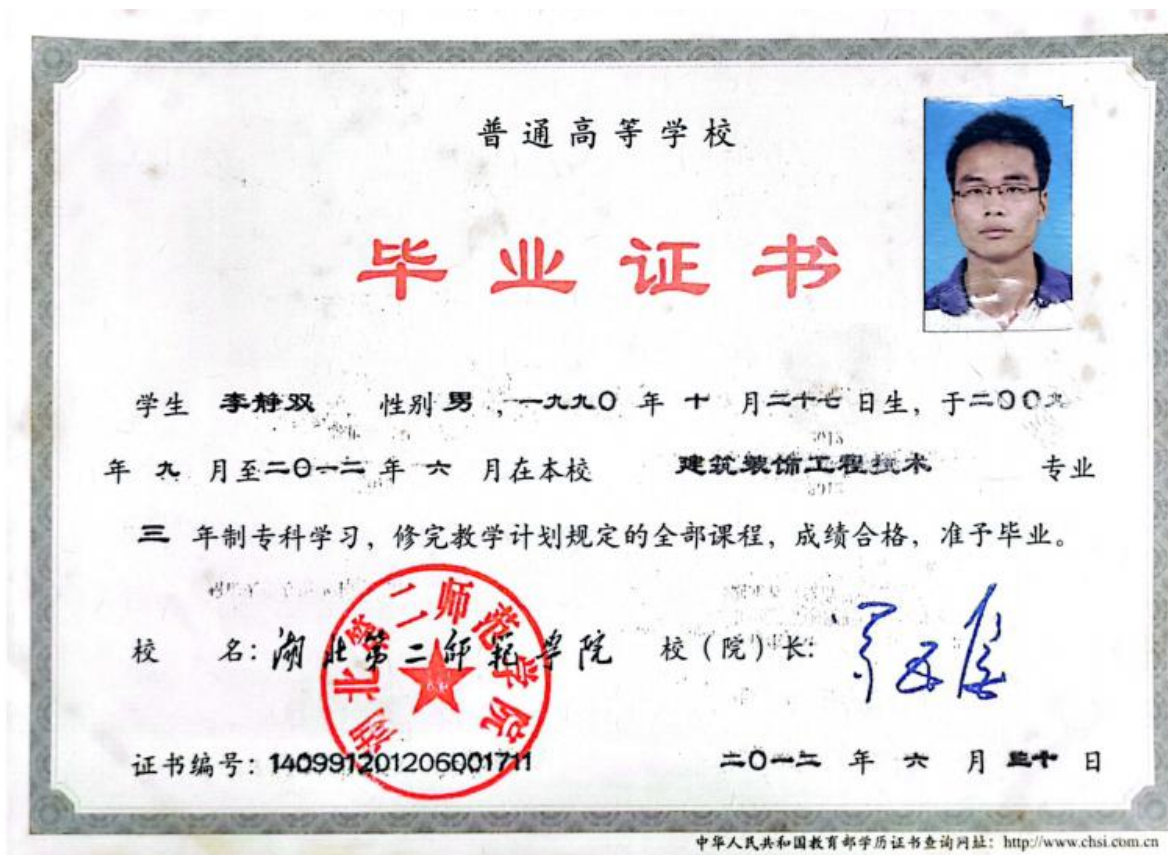 普通高等学校
毕业证书
学生 李静双 性别 男 ,一九九〇 年 十 月二十七 日生, 于二〇〇九
年 九 月至二〇一二 年 六 月在本校 建筑装饰工程技术 专业
三 年制专科学习, 修完教学计划规定的全部课程, 成绩合格, 准予毕业。
湖北第二师范学院
校 名: 湖北第二师范学院 校(院)长:
证书编号: 140991201206001711 二〇一二 年 六 月 三十 日
中华人民共和国教育部学历证书查询网址: http://www.chsi.com.cn